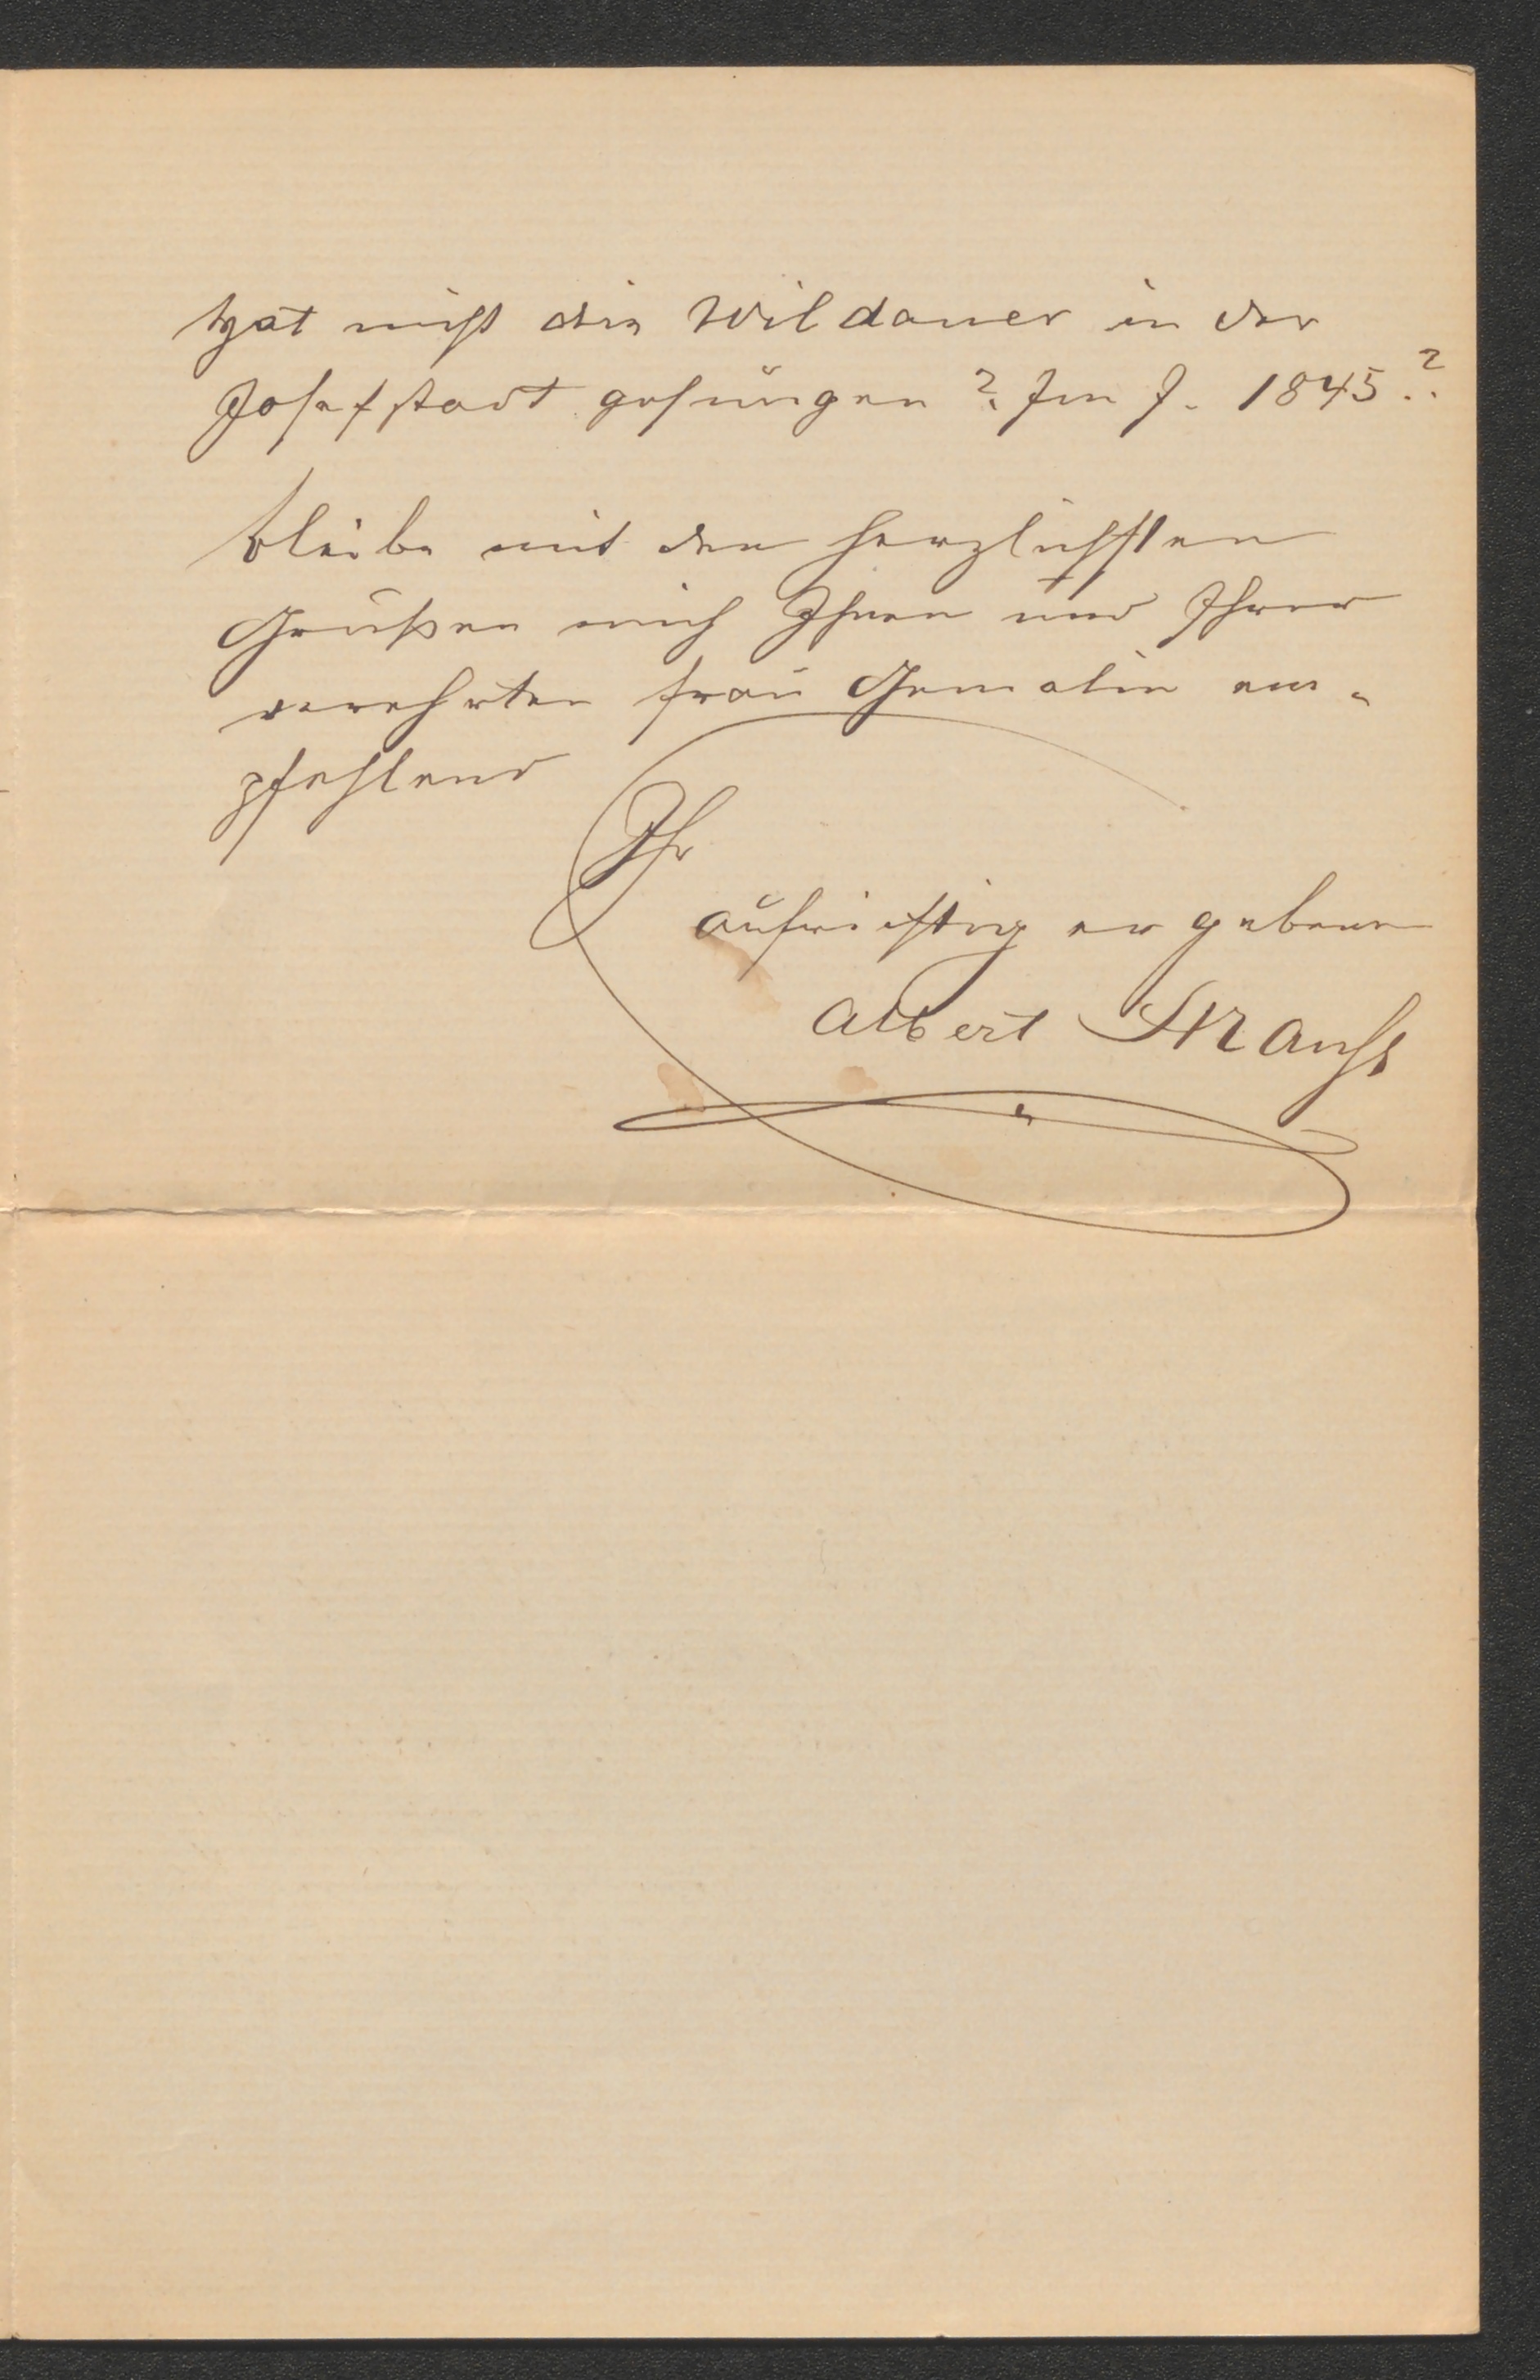 Hat nicht die Wildauer in der
Josefstadt gesungen? Im J. 1845?.
bleibe mit den herzlichsten
Grüßen mich Ihnen und Ihrer
verehrten Frau Gemalin em-
pfehlend
Ihr
aufrichtig ergebener
Albert Strauß